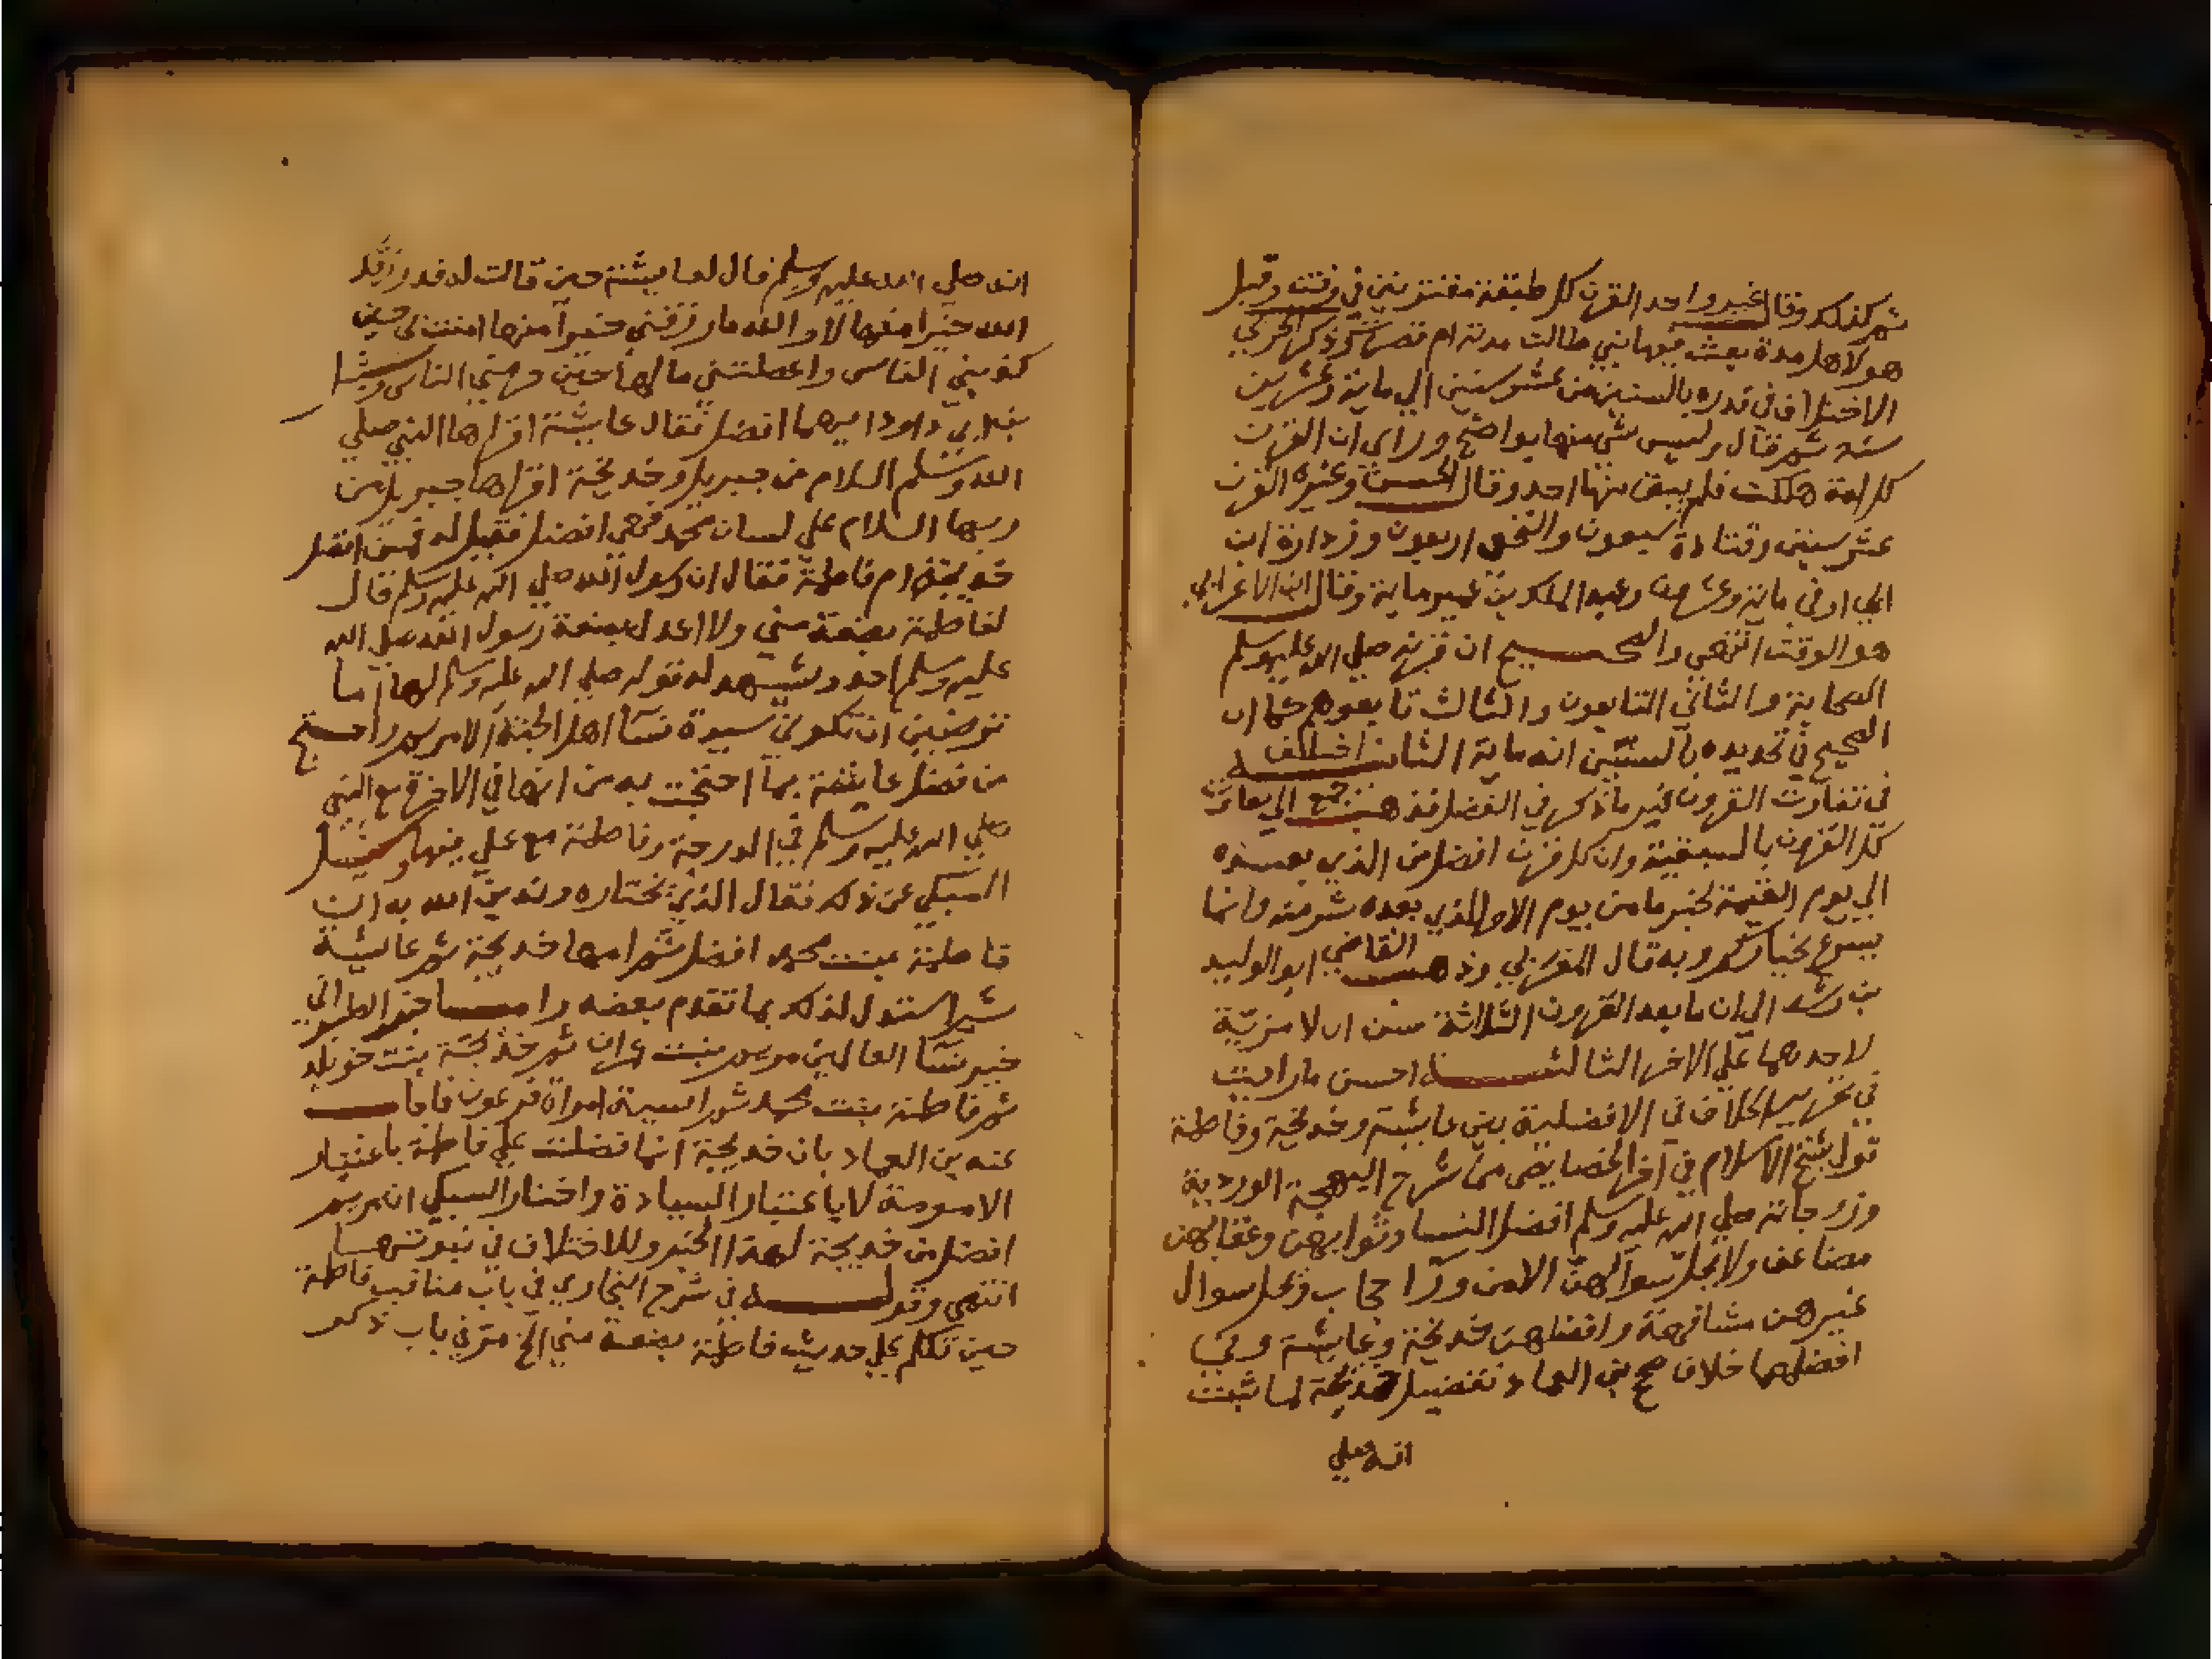 ثم كذلك وقال غير واحد القرن كل طبقة مقترنين في وقت وقيل
هولاهل مدة بعث فيها نبي طالت مدته ام قصرت وذكر الحربي
الاختلاف في قدره بالسنين من عشر سنين الي ماية وعشرين
سنة ثم قال وليس شي منها بواضح وراي ان القرن
كل امة هلكت فلم يبق منها احد وقال الحسن وغيره القرن
عشر سنين وقتادة سبعون والنخعي اربعون وزرارة ابن
ابي اوفي ماية وعشرون وعبد الملك بن عمير ماية وقال ابن الاعرابي
هو الوقت انتهي والصحيح ان قرنه صلي الله عليه وسلم
الصحابة والثاني التابعون والثالث تابعوهم كما ان
الصحيح في تحديده بالسنين انه ماية الثان اختلف
في تفاوت القرون غير ما ذكر في الفضل فذهب جمع الي تفاوت
كل القرون بالسبقية وان كل قرن افضل من الذي بعده
الي يوم القيمة لخبر ما من يوم الا والذي بعده شر منه وانما
يسرع بخياركم وبه قال المغربي وذهب القاضي ابو الوليد
بن رشد الي ان ما بعد القرون الثلاثة سنن اي لا مزية
لاحدهما علي الاخر الثالث احسن ما رايت
في تحرير الخلاف في الافضلية بين عايشة وخديجة وفاطمة
قول شيخ الاسلام في اخر الخصايص من شرح البهجة الوردية
وزوجاته صلي الله عليه وسلم افضل النسا وثوابهن وعقابهن
مضاعف ولا يحل سوالهن الا من ورا حجاب ويحل سوال
غيرهن مشافهة وافضلهن خديجة وعايشة وفي
افضلهما خلاف صحح بن العماد تفضيل خديجة لما ثبت
انه صلي
انه صلي الله عليه وسلم قال لعايشة حين قالت له قد رزقك
الله خيرا منها لا والله ما رزقني خيرا منها امنت بي حين
كذبني الناس واعطتني مالها حين حرمني الناس وسيل
بن ابي داود ايهما افضل فقال عايشة اقراها النبي صلي
الله وسلم السلام من جبريل وخديجة اقراها جبريل من
ربها السلام علي لسان محمد فهي افضل فقيل له فمن افضل
خديجة ام فاطمة فقال ان رسول الله صلي الله عليه وسلم قال
لفاطمة بضعة مني ولا اعدل ببضعة رسول الله صلي الله
عليه وسلم احد ويشهد له قوله صلي الله عليه وسلم لها اما
ترضين ان تكوني سيدة نسا اهل الجنة الا مريم واحتج
من فضل عايشة بما احتجت به من انها في الاخرة مع النبي
صلي الله عليه وسلم في الدرجة وفاطمة مع علي فيها وسيل
السبكي عن ذلك فقال الذي نختاره وندين الله به ان
فاطمة بنت محمد افضل ثم امها خديجة ثم عايشة
ثم استدل لذلك بما تقدم بعضه واما خبر الطبراني
خير نسا العالمين مريم بنت عمران ثم خديجة بنت خويلد
ثم فاطمة بنت محمد ثم اسية امراة فرعون فاجاب
عنه بن العماد بان خديجة انما فضلت علي فاطمة باعتبار
الامومة لا باعتبار السيادة واختار السبكي ان مريم
افضل من خديجة لهذا الخبر وللاختلاف في نبوتها
انتهي وقوله في شرح البخاري في باب مناقب فاطمة
حين تكلم علي حديث فاطمة بضعة مني الخ مر في باب ذكر